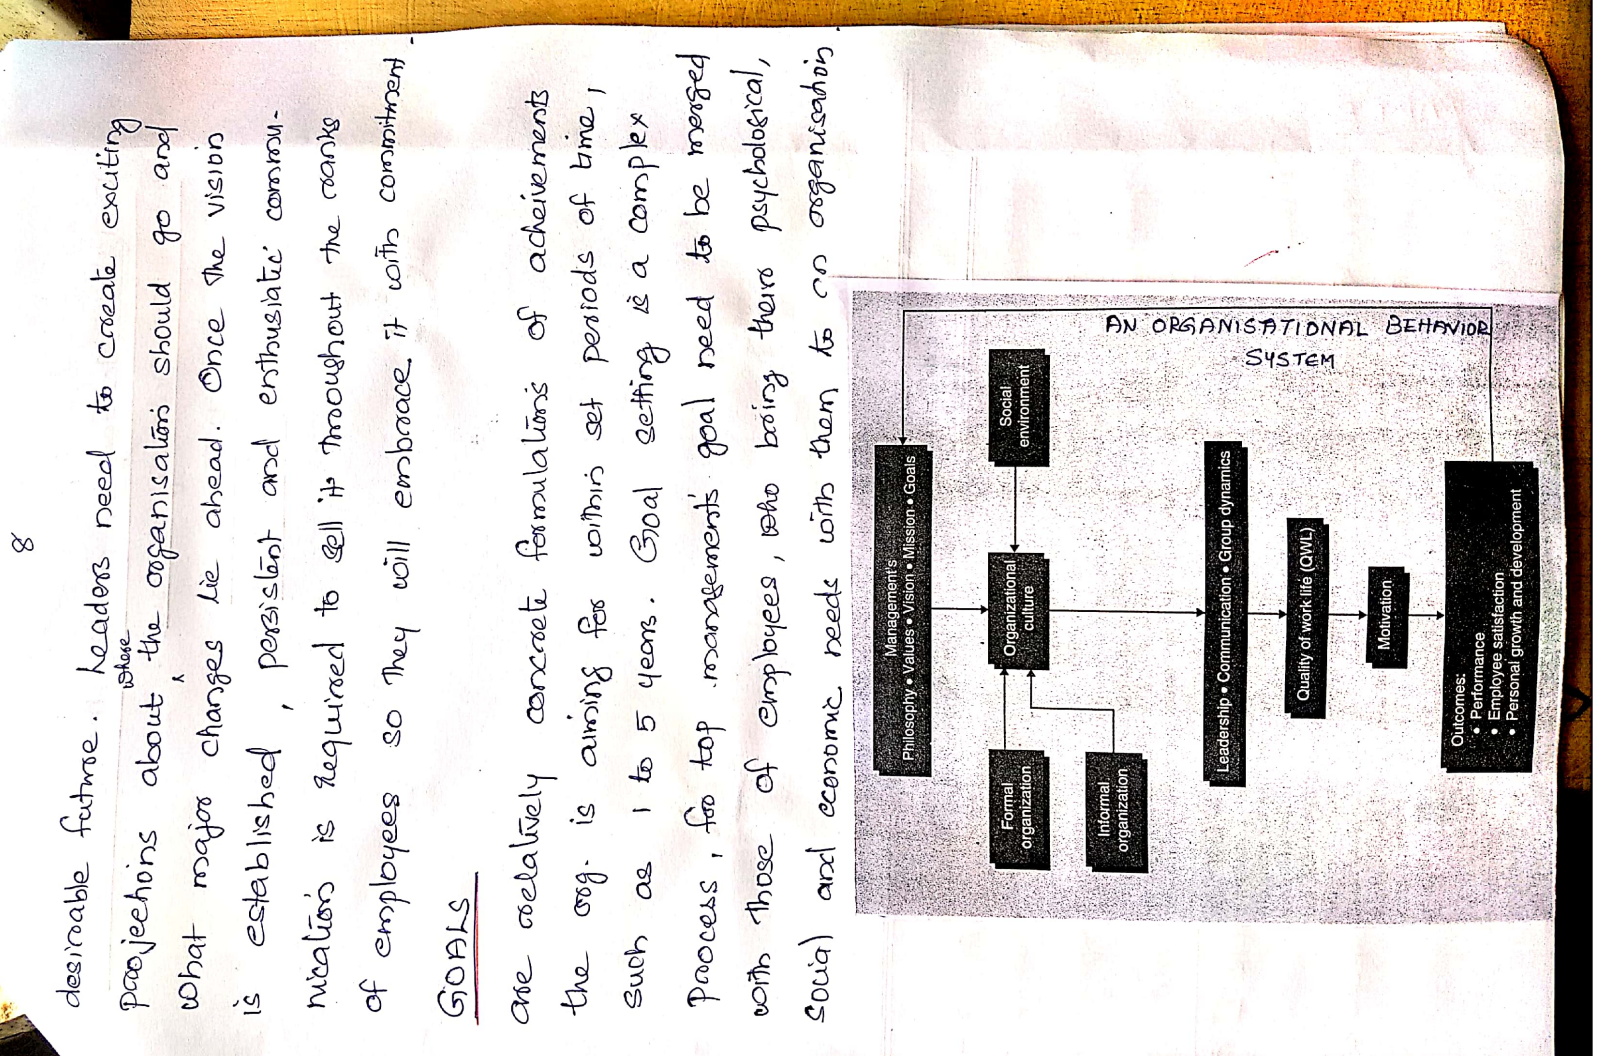 8
desirable future. Leaders need to create exciting
where
projections about the organisation should go and
what major changes lie ahead. Once the vision
is established, persistent and enthusiatic commu-
nication is required to sell it throughout the ranks
of employees so they will embrace it with commitment.
GOALS
are relatively concrete formulations of acheivements
the org. is aiming for within set periods of time,
such as 1 to 5 years. Goal setting is a complex
process, for top management's goal need to be merged
with those of employees, who bring their psychological,
social and economic needs with them to an organisation.
AN ORGANISATIONAL BEHAVIOR
SYSTEM
Management's
Philosophy • Values • Vision • Mission • Goals
Formal
organization
Organizational
culture
Social
environment
Informal
organization
Leadership • Communication • Group dynamics
Quality of work life (QWL)
Motivation
Outcomes:
• Performance
• Employee satisfaction
• Personal growth and development